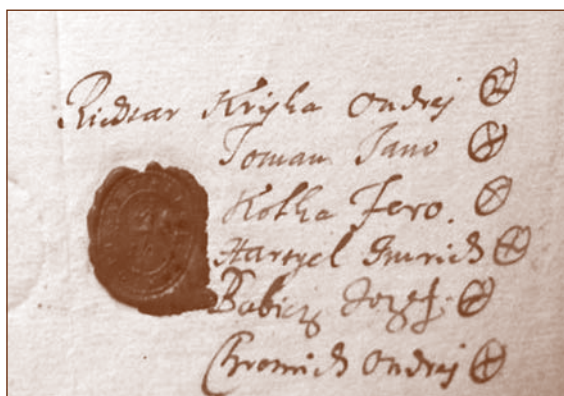 Richtar Kriska Ondrej
Toman Jano
Kotka Fero.
Hartzel Imrich
Babicz Jozef
Chromich Ondrej